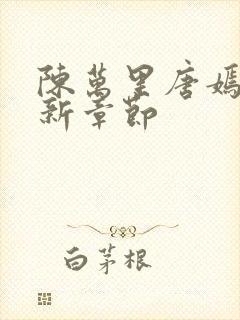 陳萬里唐嫣
新章節
白茅根